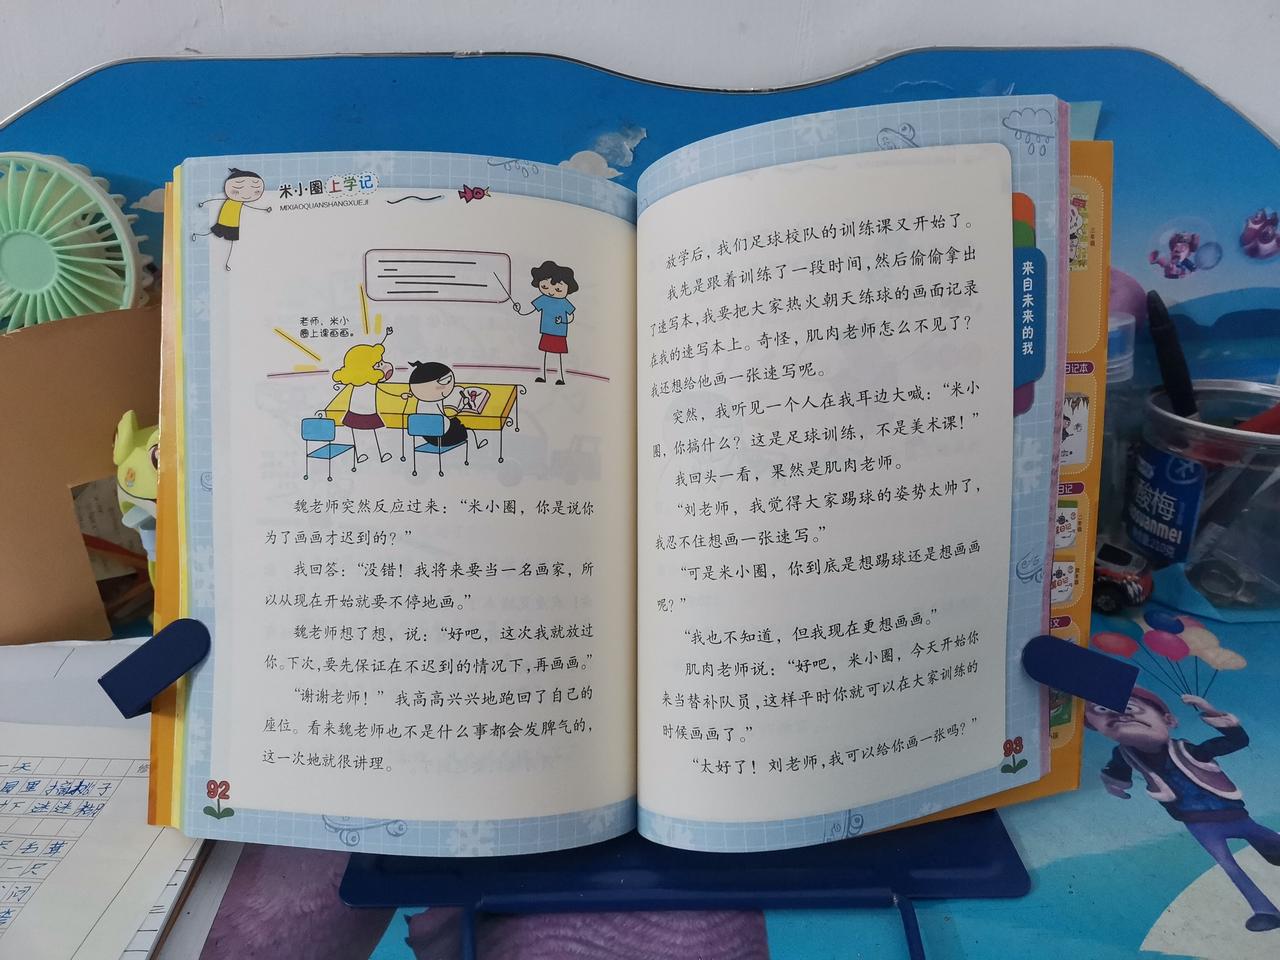 米小圈上学记
MIXIAOQUANSHANGXUEJI
老师，米小
圈上课画画。
魏老师突然反应过来：“米小圈，你是说你
为了画画才迟到的？”
我回答：“没错！我将来要当一名画家，所
以从现在开始就要不停地画。”
魏老师想了想，说：“好吧，这次我就放过
你。下次，要先保证在不迟到的情况下，再画画。”
“谢谢老师！”我高高兴兴地跑回了自己的
座位。看来魏老师也不是什么事都会发脾气的，
这一次她就很讲理。
92
放学后，我们足球校队的训练课又开始了。
我先是跟着训练了一段时间，然后偷偷拿出
了速写本，我要把大家热火朝天练球的画面记录
在我的速写本上。奇怪，肌肉老师怎么不见了？
我还想给他画一张速写呢。
突然，我听见一个人在我耳边大喊：“米小
圈，你搞什么？这是足球训练，不是美术课！”
我回头一看，果然是肌肉老师。
“刘老师，我觉得大家踢球的姿势太帅了，
我忍不住想画一张速写。”
“可是米小圈，你到底是想踢球还是想画画
呢？”
“我也不知道，但我现在更想画画。”
肌肉老师说：“好吧，米小圈，今天开始你
来当替补队员，这样平时你就可以在大家训练的
时候画画了。”
“太好了！刘老师，我可以给你画一张吗？”
93
来自未来的我
日记本
酸梅
一天